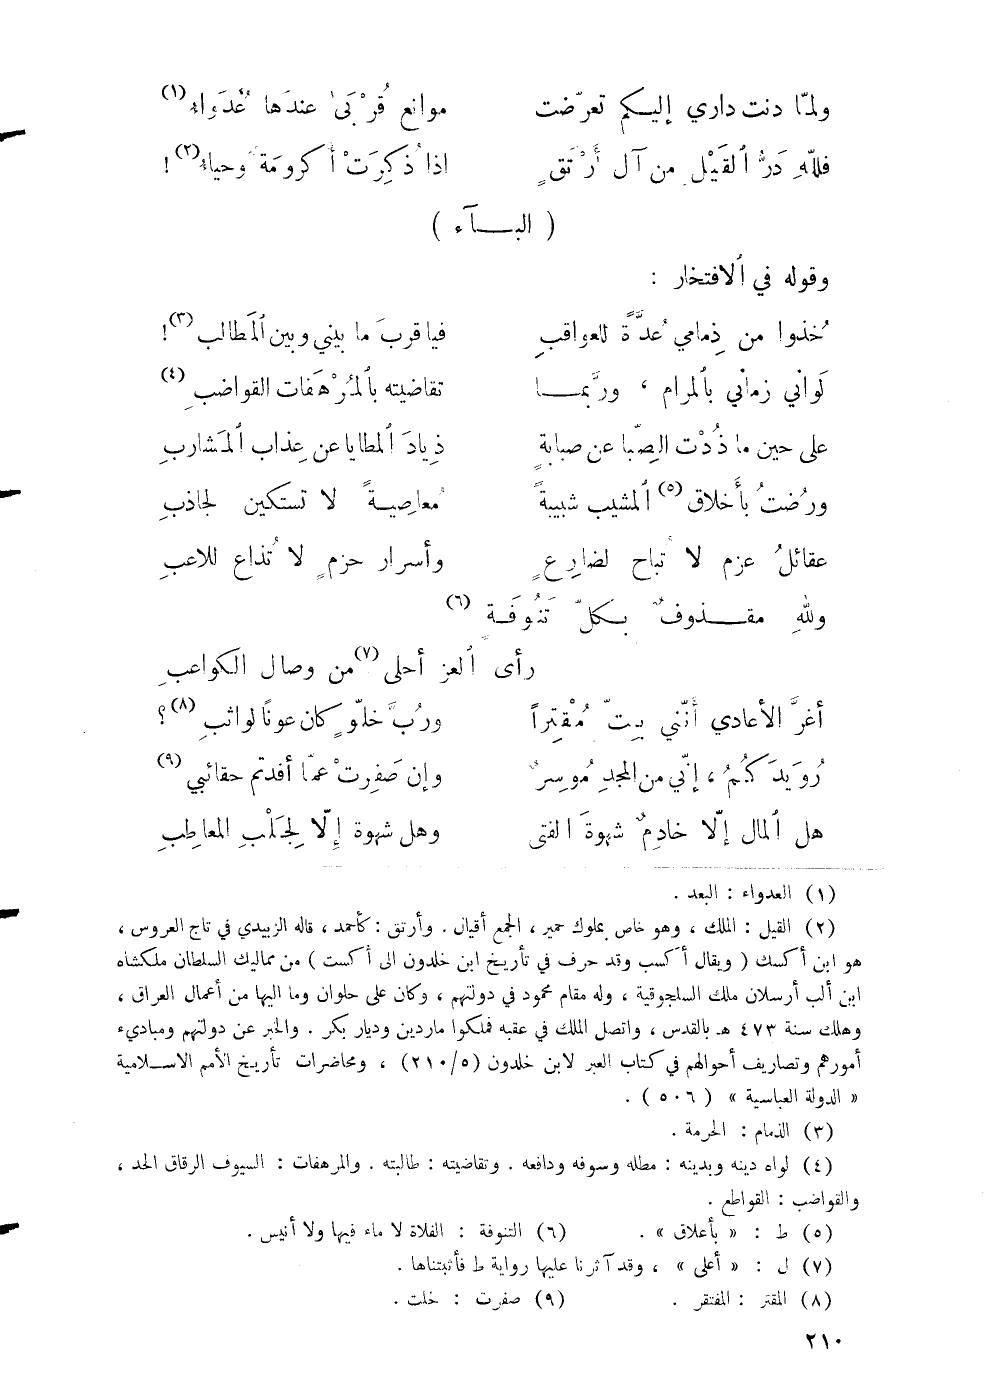 ولمّا دنت داري إليكم تعرّضت موانع قُرْبَىٰ عندَها عُدَواء (١)
فللّٰهِ دَرُّ ٱلقَيْلِ من آل أَرْتَقٍ اذا ذُكِرَتْ أكرومَة وحياء (٢) !
( البــآء )
وقوله في ٱلافتخار :
خُذوا من ذِمامي عُدَّةً للعواقبِ فيا قربَ ما بيني وبين ٱلمَطالب (٣) !
لَواني زماني بٱلمرام ، وربَّمــا تقاضيته بٱلمُرْهَفات القواضبِ (٤)
على حين ما ذُدْت الصِّبا عن صبابةٍ ذِيادَ ٱلمطايا عن عِذاب ٱلمَشاربِ
ورُضتُ بأَخلاق (٥) ٱلمشيب شبيبةً مُعاصِيــةً لا تستكين لجاذبِ
عقائلُ عزم لا تُباح لضارِعٍ وأسرار حزمٍ لا تُذاع للاعبِ
وللّٰهِ مقــذوفٌ بكلّ تَنُوفَــة (٦)
رأى ٱلعز أحلى (٧) من وصال الكواعبِ
أغرَّ الأعادي أنّني بِتّ مُقْتِراً ورُبَّ خلّوٍ كان عونًا لواثبِ (٨) ؟
رُوَيدَكُمُ ، إنّي من المجدِ مُوسِرٌ وإن صَفِرتْ عمّا أفدتم حقائبي (٩)
هل ٱلمال إلّا خادِمٌ شهوةَ الفتى وهل شهوة إلّا لجَلْبِ المعاطِبِ
(١) العدواء : البعد .
(٢) القيل : الملك ، وهو خاص بملوك حمير ، الجمع أقيال . وأرتق : كأحمد ، قاله الزبيدي في تاج العروس ،
هو ابن أكسك ( ويقال أكسب وقد حرف في تأريخ ابن خلدون الى أكست ) من مماليك السلطان ملكشاه
ابن ألب أرسلان ملك السلجوقية ، وله مقام محمود في دولتهم ، وكان على حلوان وما اليها من أعمال العراق ،
وهلك سنة ٤٧٣ هـ بالقدس ، واتصل الملك في عقبه فملكوا ماردين وديار بكر . والخبر عن دولتهم ومباديء
أمورهم وتصاريف أحوالهم في كتاب العبر لابن خلدون (٥/٢١٠) ، ومحاضرات تأريخ الأمم الاسلامية
« الدولة العباسية » (٥٠٦) .
(٣) الذمام : الحرمة .
(٤) لواه دينه وبدينه : مطله وسوفه ودافعه . وتقاضيته : طالبته . والمرهفات : السيوف الرقاق الحد ،
والقواضب : القواطع .
(٥) ط : « بأعلاق » . (٦) التنوفة : الفلاة لا ماء فيها ولا أنيس .
(٧) ل : « أعلى » ، وقد آثرنا عليها رواية ط فأثبتناها .
(٨) المقتر : المفتقر . (٩) صفرت : خلت .
٢١٠